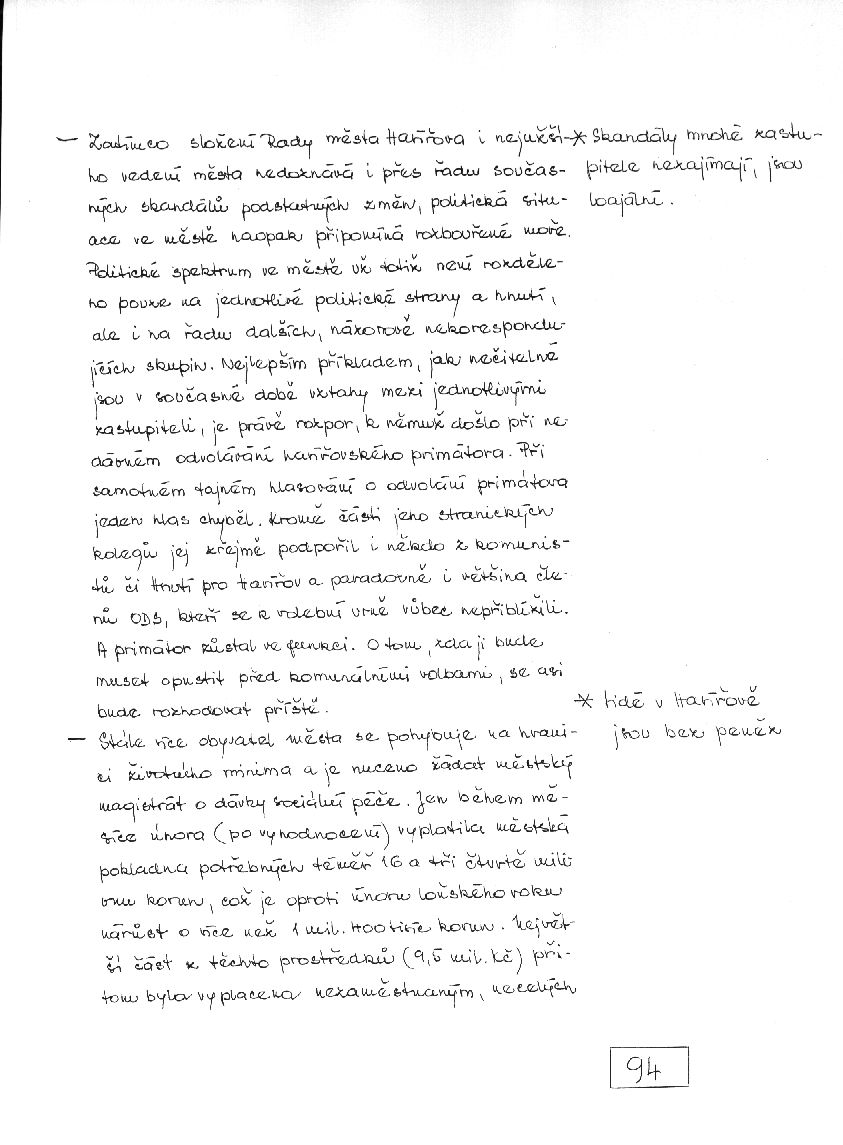 — Zatímco složení Rady města Havířova i nejužší-
ho vedení města nedoznává i přes řadu součas-
ných skandálů podstatných změn, politická situ-
ace ve městě naopak připomíná rozbouřené moře.
Politické spektrum ve městě už totiž není rozděle-
no pouze na jednotlivé politické strany a hnutí,
ale i na řadu dalších, názorově nekorespondu-
jících skupin. Nejlepším příkladem, jak nečitelné
jsou v současné době vztahy mezi jednotlivými
zastupiteli, je právě rozpor, k němuž došlo při ne-
dávném odvolávání havířovského primátora. Při
samotném tajném hlasování o odvolání primátora
jeden hlas chyběl. Kromě části jeho stranických
kolegů jej zřejmě podpořil i někdo z komunis-
tů či Hnutí pro Havířov a paradoxně i většina čle-
nů ODS, kteří se k volební urně vůbec nepřiblížili.
A primátor zůstal ve funkci. O tom, zda ji bude
muset opustit před komunálními volbami, se asi
bude rozhodovat příště.
— Stále více obyvatel města se pohybuje na hrani-
ci životního minima a je nuceno žádat městský
magistrát o dávky sociální péče. Jen během mě-
síce února (po vyhodnocení) vyplatila městská
pokladna potřebných téměř 16 a tři čtvrtě mili
onu korun, což je oproti únoru loňského roku
nárůst o více než 1 mil. 400 tisíc korun. Největ-
ší část z těchto prostředků (9,5 mil. Kč) při-
tom byla vyplacena nezaměstnaným, necelých
* Skandály mnohé zastu-
pitele nezajímají, jsou
loajální.
* Lidé v Havířově
jsou bez peněz
94